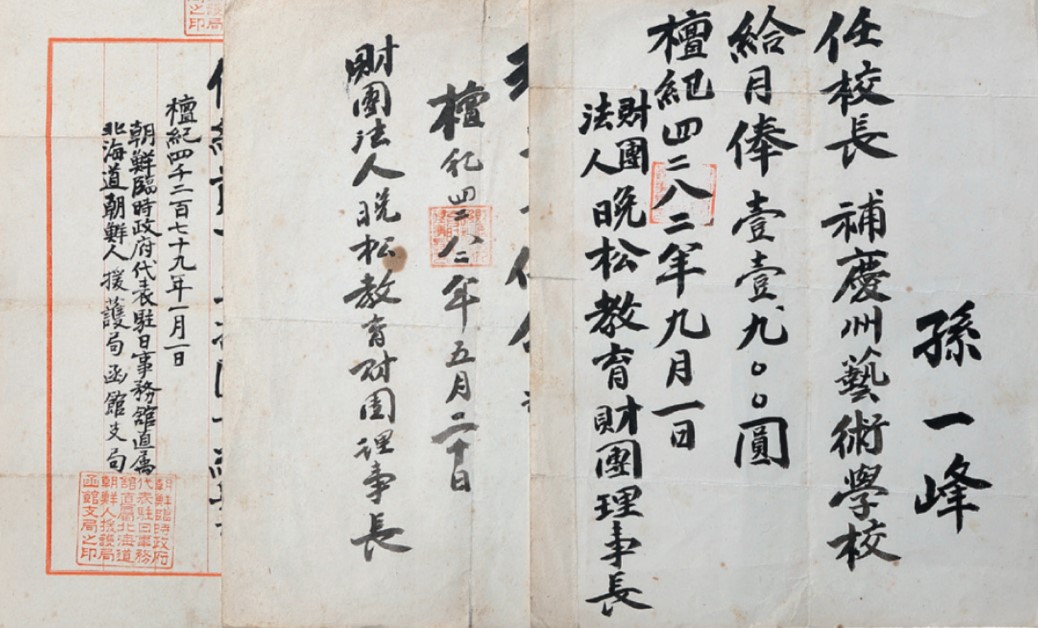 孫一峰
任校長 補慶州藝術學校
給月俸壹壹九〇〇圓
檀紀四二八二年九月一日
財團法人晩松教育財團理事長
檀紀四二八二年五月二十日
財團法人晩松教育財團理事長
檀紀四千二百七十九年一月一日
朝鮮臨時政府代表駐日事務館直屬
北海道朝鮮人援護局函館支局
臨時政府
代表駐日事務
館直屬北海道
朝鮮人援護局
函館支局之印
護局
之印